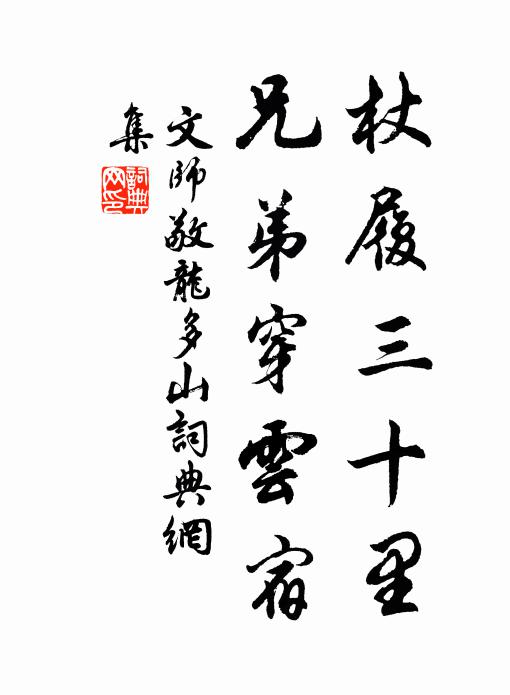 杖履三十里
兄弟穿雲宿
文師敬龍多山詞典網
集
詞典网印